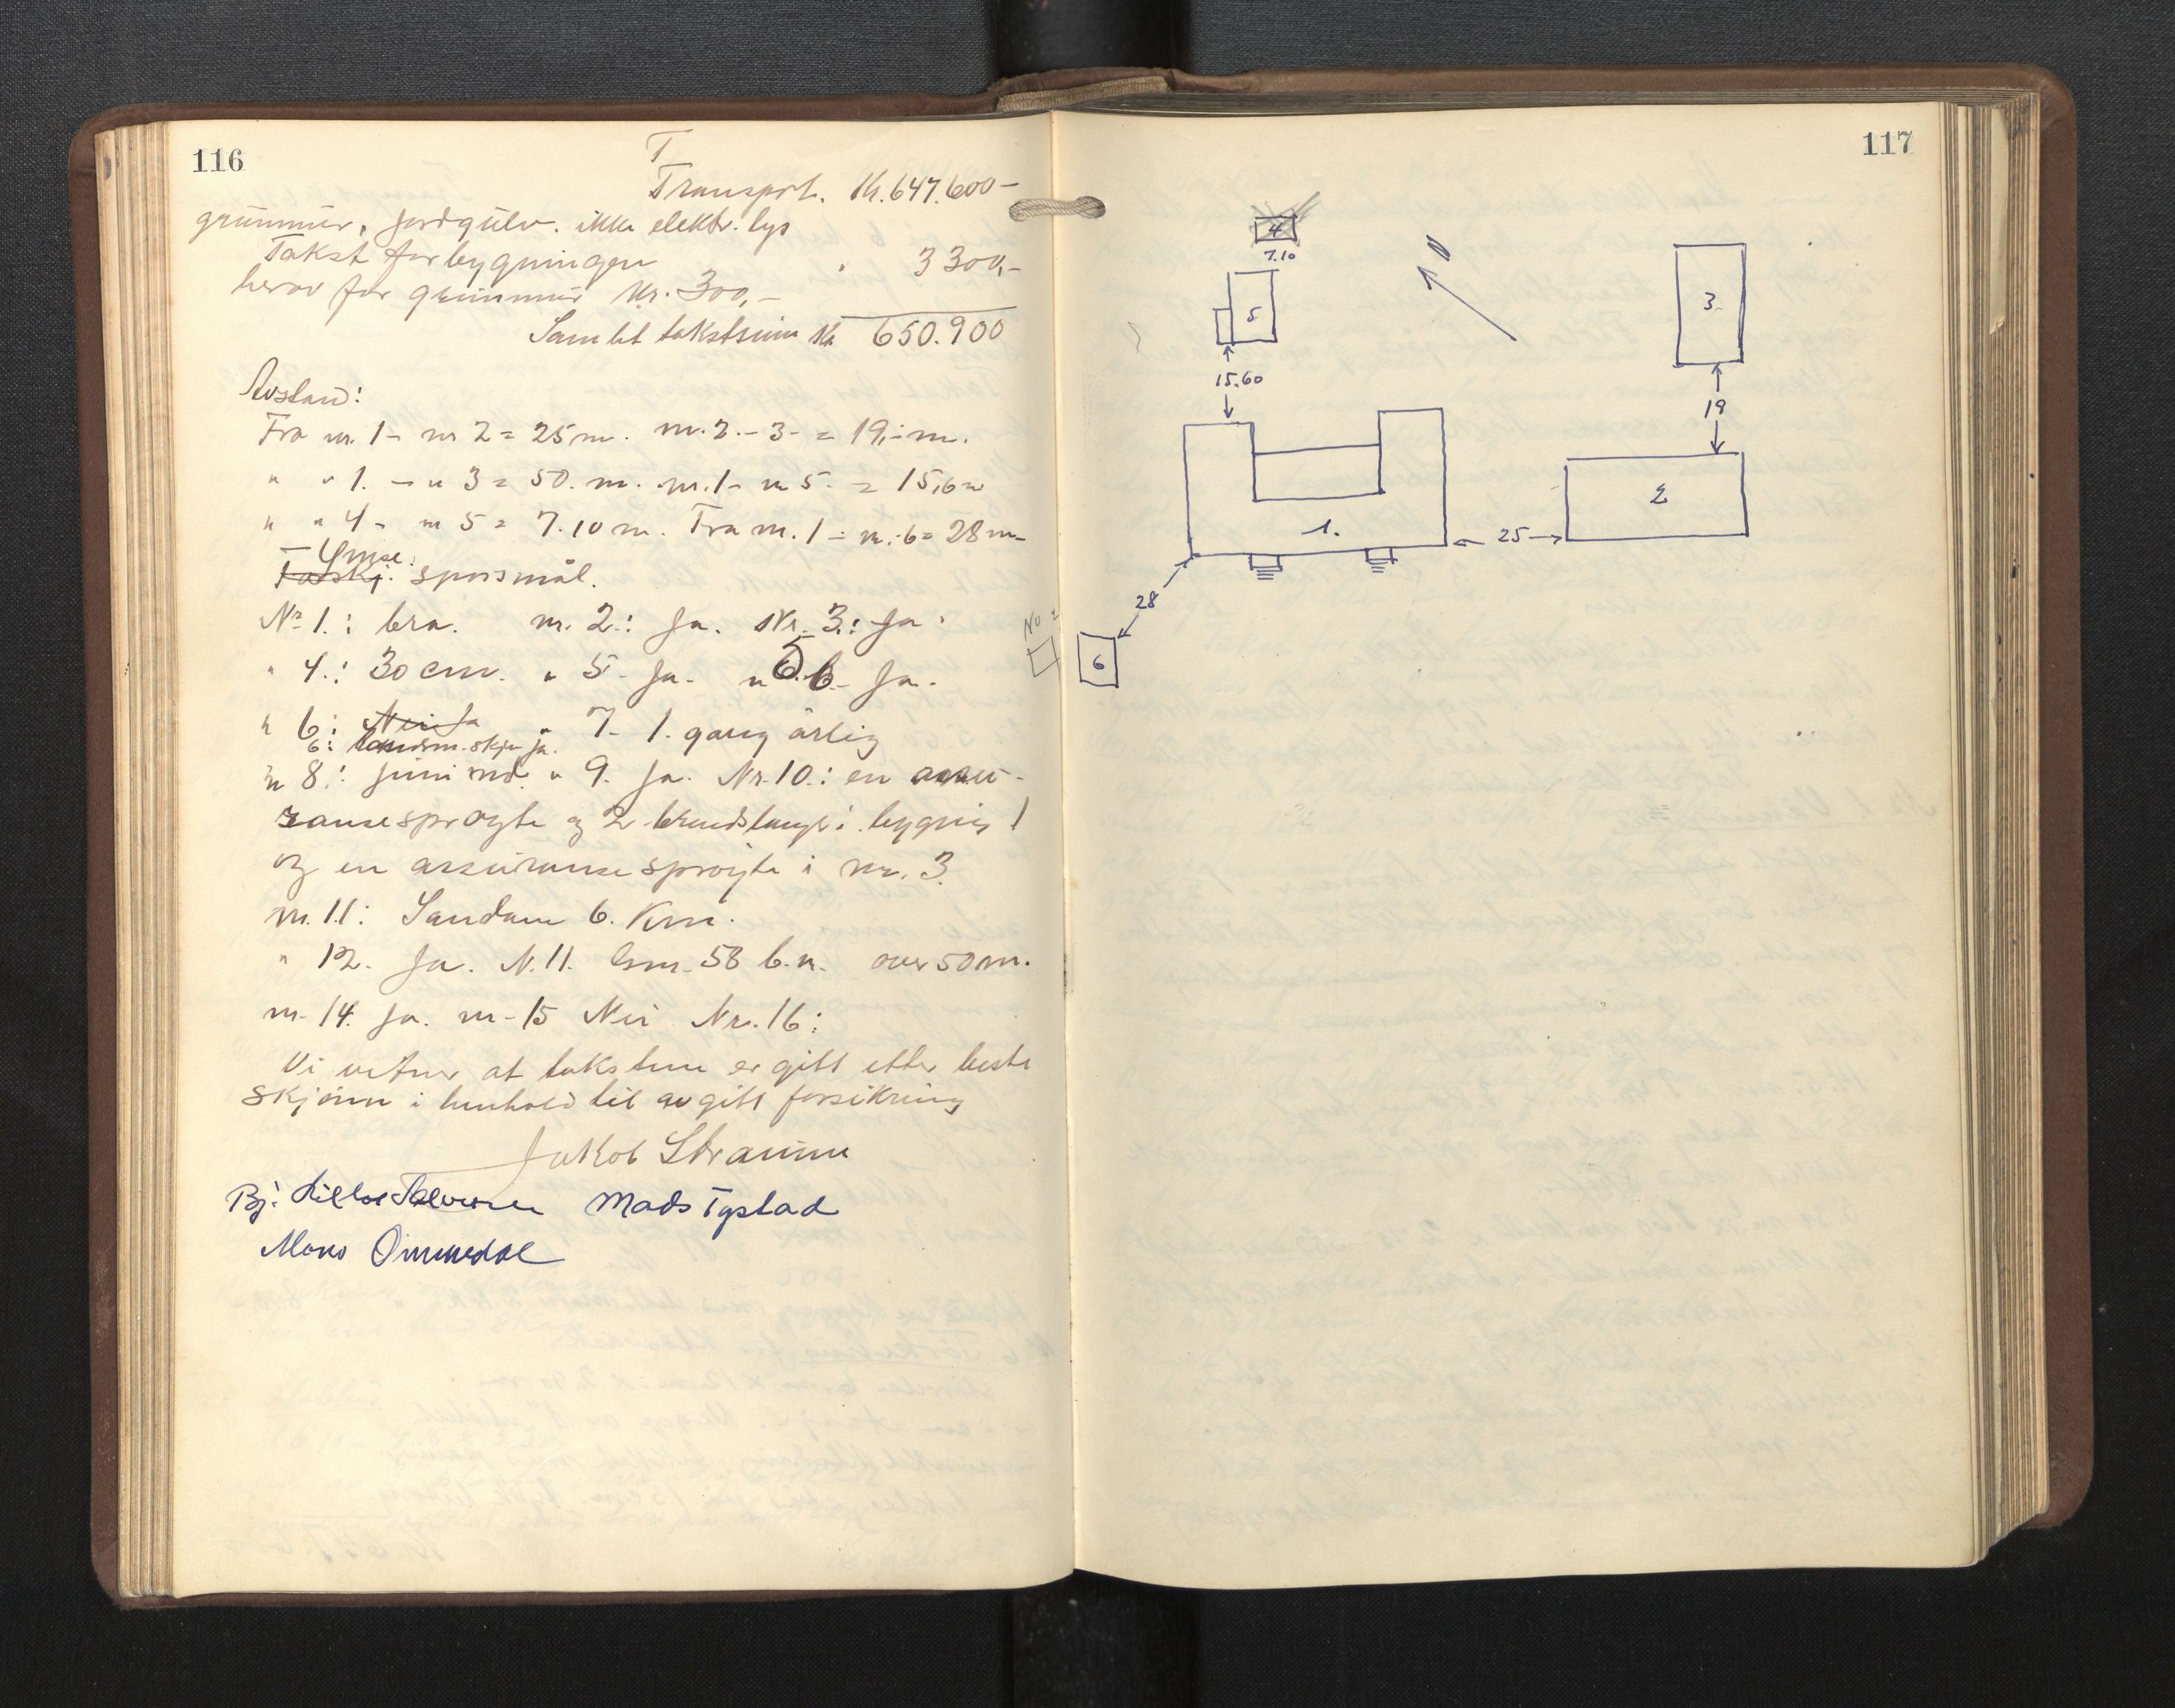 116
T
Transport. Kr. 647.600-
grunnmur, jordgulv. ikke elektr. lys
Takst for bygningen " 3300,-
herav for grunnmur Kr. 300,-
Samlet takstsum Kr 650.900
Avstand:
Fra nr. 1 - nr 2 = 25 m. nr. 2. - 3 - = 19,- m.
" " 1. - " 3 = 50. m. nr. 1 - nr 5. = 15,6 m
" " 4 - nr 5 = 7.10 m. Fra nr. 1 - nr. 6 = 28 m-
Ymse
spørsmål.
Nr 1.: bra. nr. 2.: Ja. Nr. 3.: Ja.
" 4.: 30 cm. " 5 - Ja - " 6 - Ja.
" 6: Nei Ja " 7 - 1. gang årlig
6: skje ja.
" 8: Juni md. " 9. Ja. Nr. 10.: en assu-
ransesprøyte og 2 brandslanger i bygning 1
og en assuransesprøyte i nr. 3.
nr. 11: Sandane 6. Km.
" 12. Ja. N. 11. Gnr. 58 b.n. over 50 m.
nr. 14. Ja. nr - 15 Nei Nr. 16:
Vi vitner at takstene er gitt etter beste
skjønn i henhold til avgitt forsikring
Jakob Straume
Mads Tystad
Ommedal
117
4
7.10
5
15.60
3
19
2
1.
25
28
6
No 2